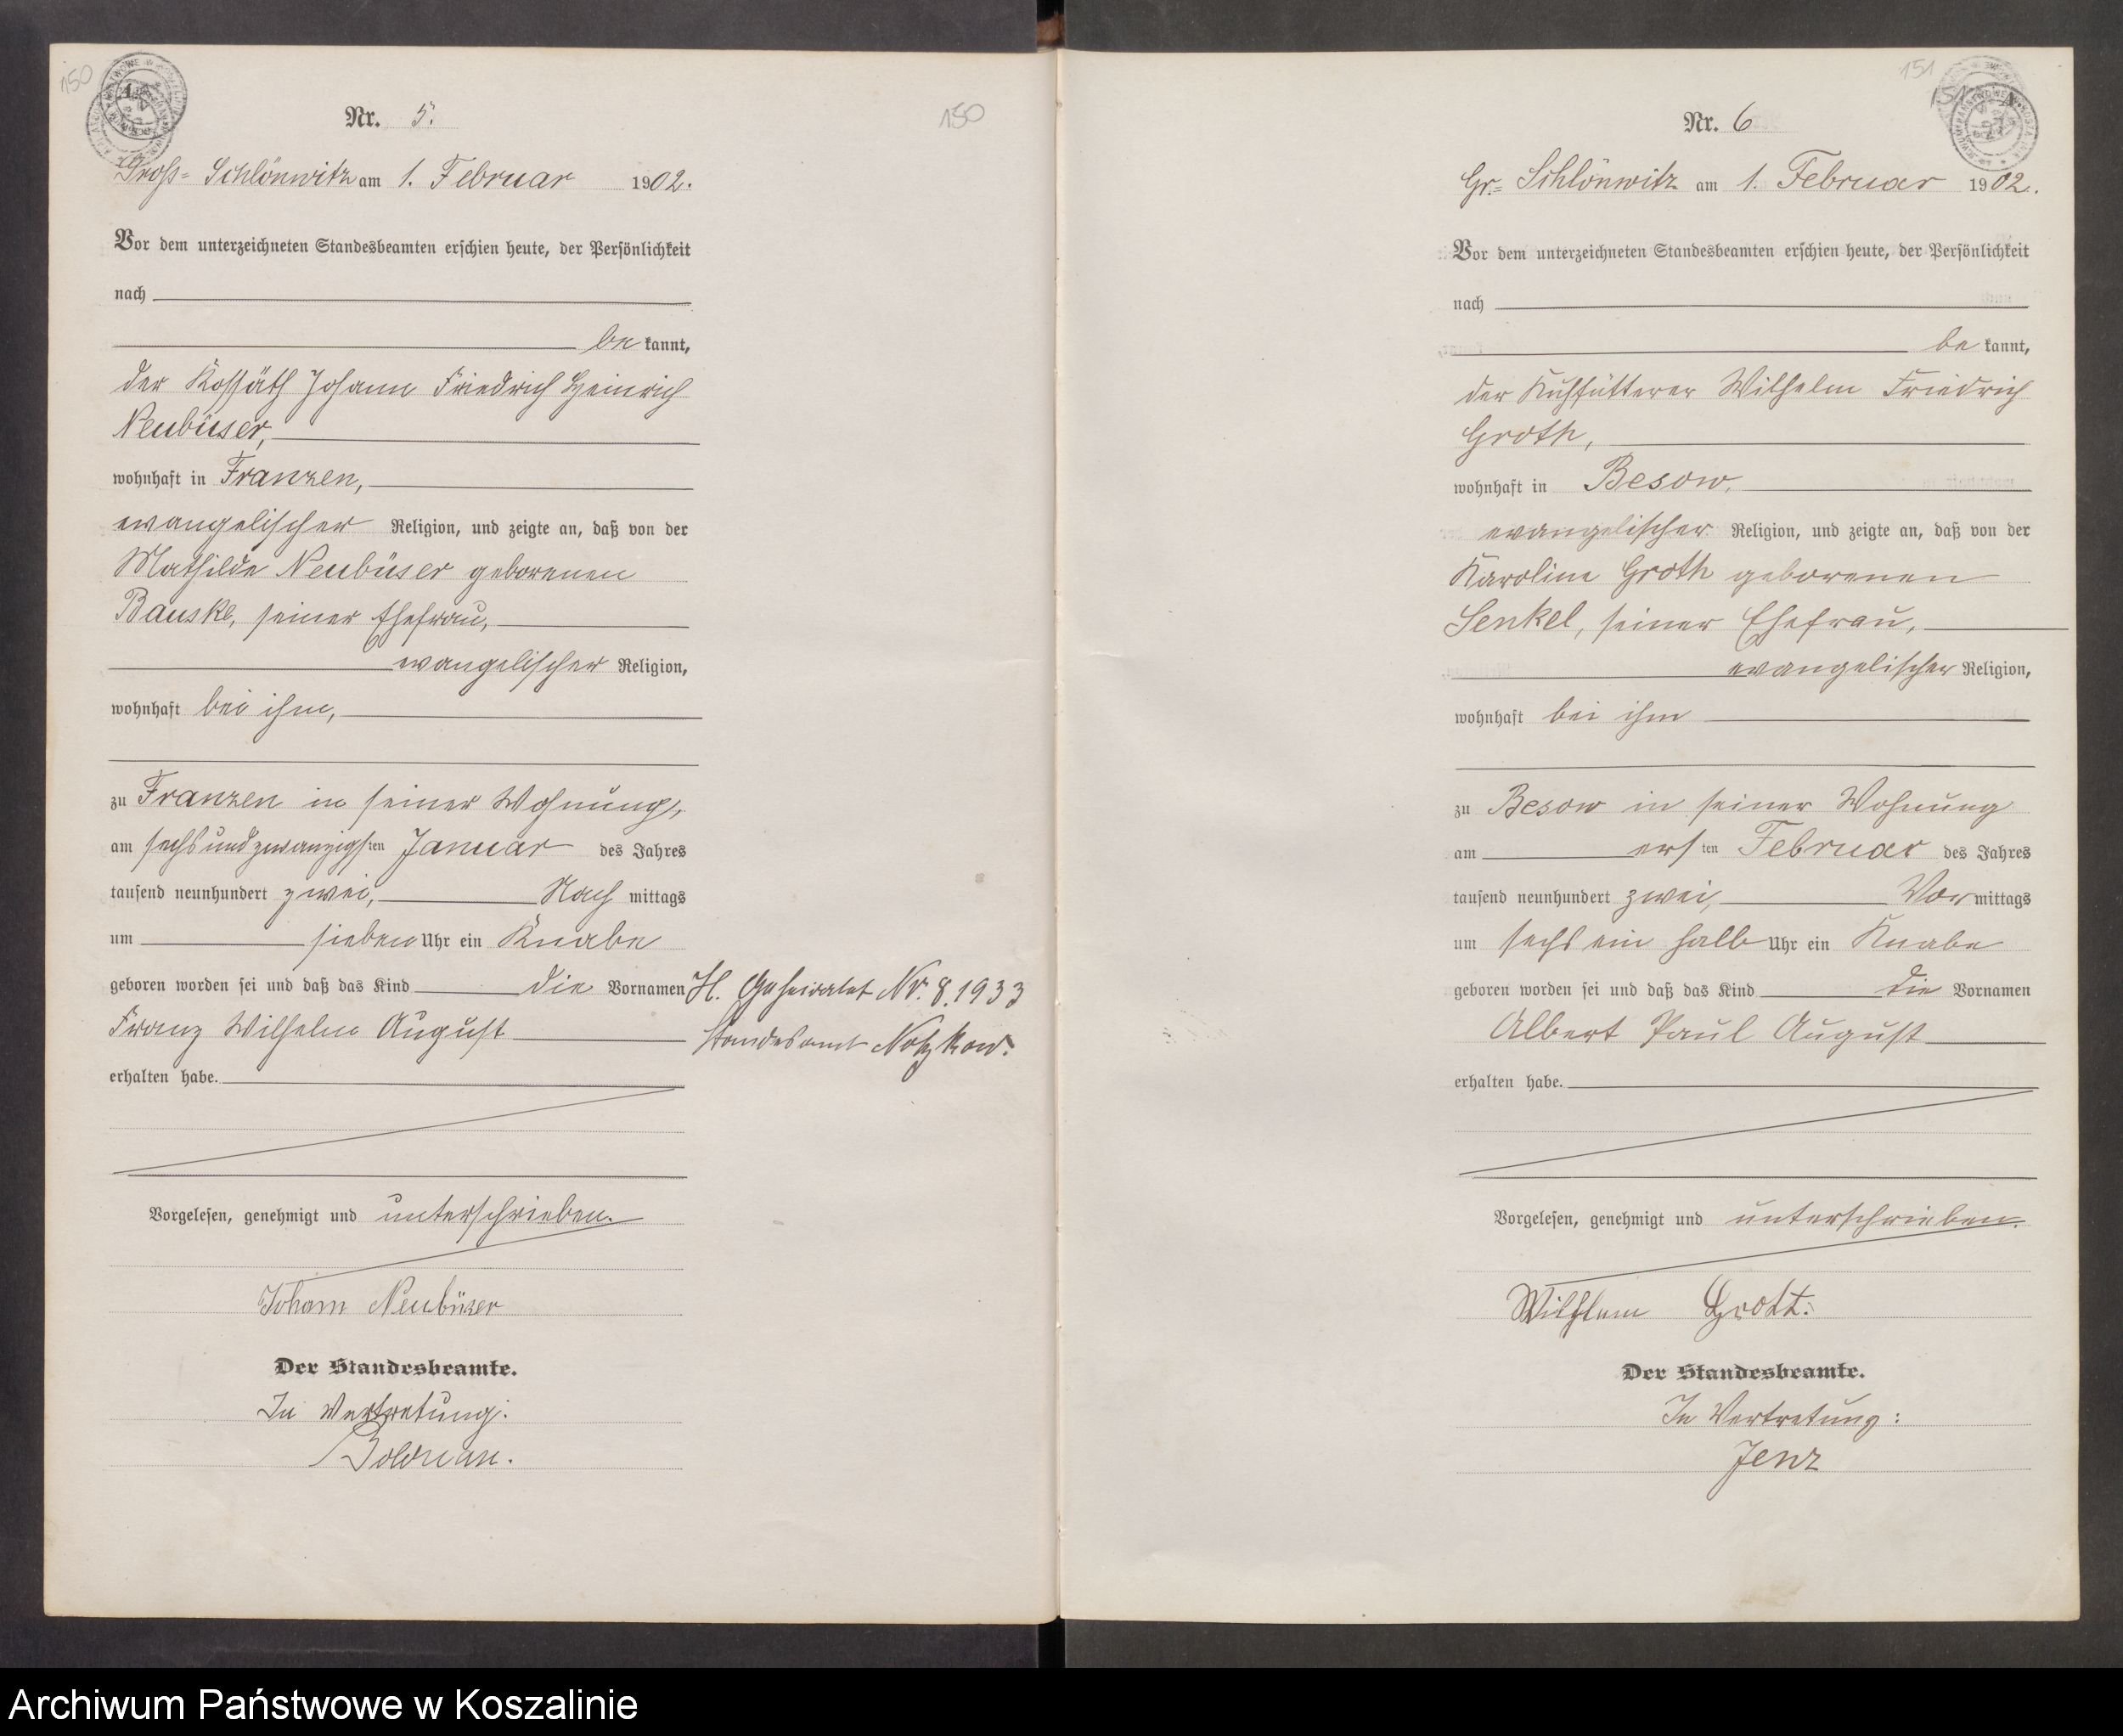 150
Nr. 5.
150
Groß-Schlönwitz am 1. Februar 1902.
Vor dem unterzeichneten Standesbeamten erschien heute, der Persönlichkeit
nach
be kannt,
der Kossäth Johann Friedrich Heinrich
Neubüser,
wohnhaft in Franzen,
evangelischer Religion, und zeigte an, daß von der
Mathilde Neubüser geborenen
Bauske, seiner Ehefrau,
evangelischer Religion,
wohnhaft bei ihm,
zu Franzen in seiner Wohnung,
am sechsundzwanzigsten Januar des Jahres
tausend neunhundert zwei, Nach mittags
um sieben Uhr ein Knabe
geboren worden sei und daß das Kind die Vornamen
Franz Wilhelm August
erhalten habe.
H. Geheiratet Nr. 8. 1933
Standesamt Notzkow.
Vorgelesen, genehmigt und unterschrieben.
Johann Neubüser
Der Standesbeamte.
In Vertretung:
Bolduan.
151
Nr. 6
Gr.-Schlönwitz am 1. Februar 1902.
Vor dem unterzeichneten Standesbeamten erschien heute, der Persönlichkeit
nach
be kannt,
der Kuhfütterer Wilhelm Friedrich
Groth,
wohnhaft in Besow,
evangelischer Religion, und zeigte an, daß von der
Karoline Groth geborenen
Senkel, seiner Ehefrau,
evangelischer Religion,
wohnhaft bei ihm
zu Besow in seiner Wohnung
am ersten Februar des Jahres
tausend neunhundert zwei, Vor mittags
um sechs ein halb Uhr ein Knabe
geboren worden sei und daß das Kind die Vornamen
Albert Paul August
erhalten habe.
Vorgelesen, genehmigt und unterschrieben.
Wilhlem Grott.
Der Standesbeamte.
In Vertretung:
Jenz
Archiwum Państwowe w Koszalinie